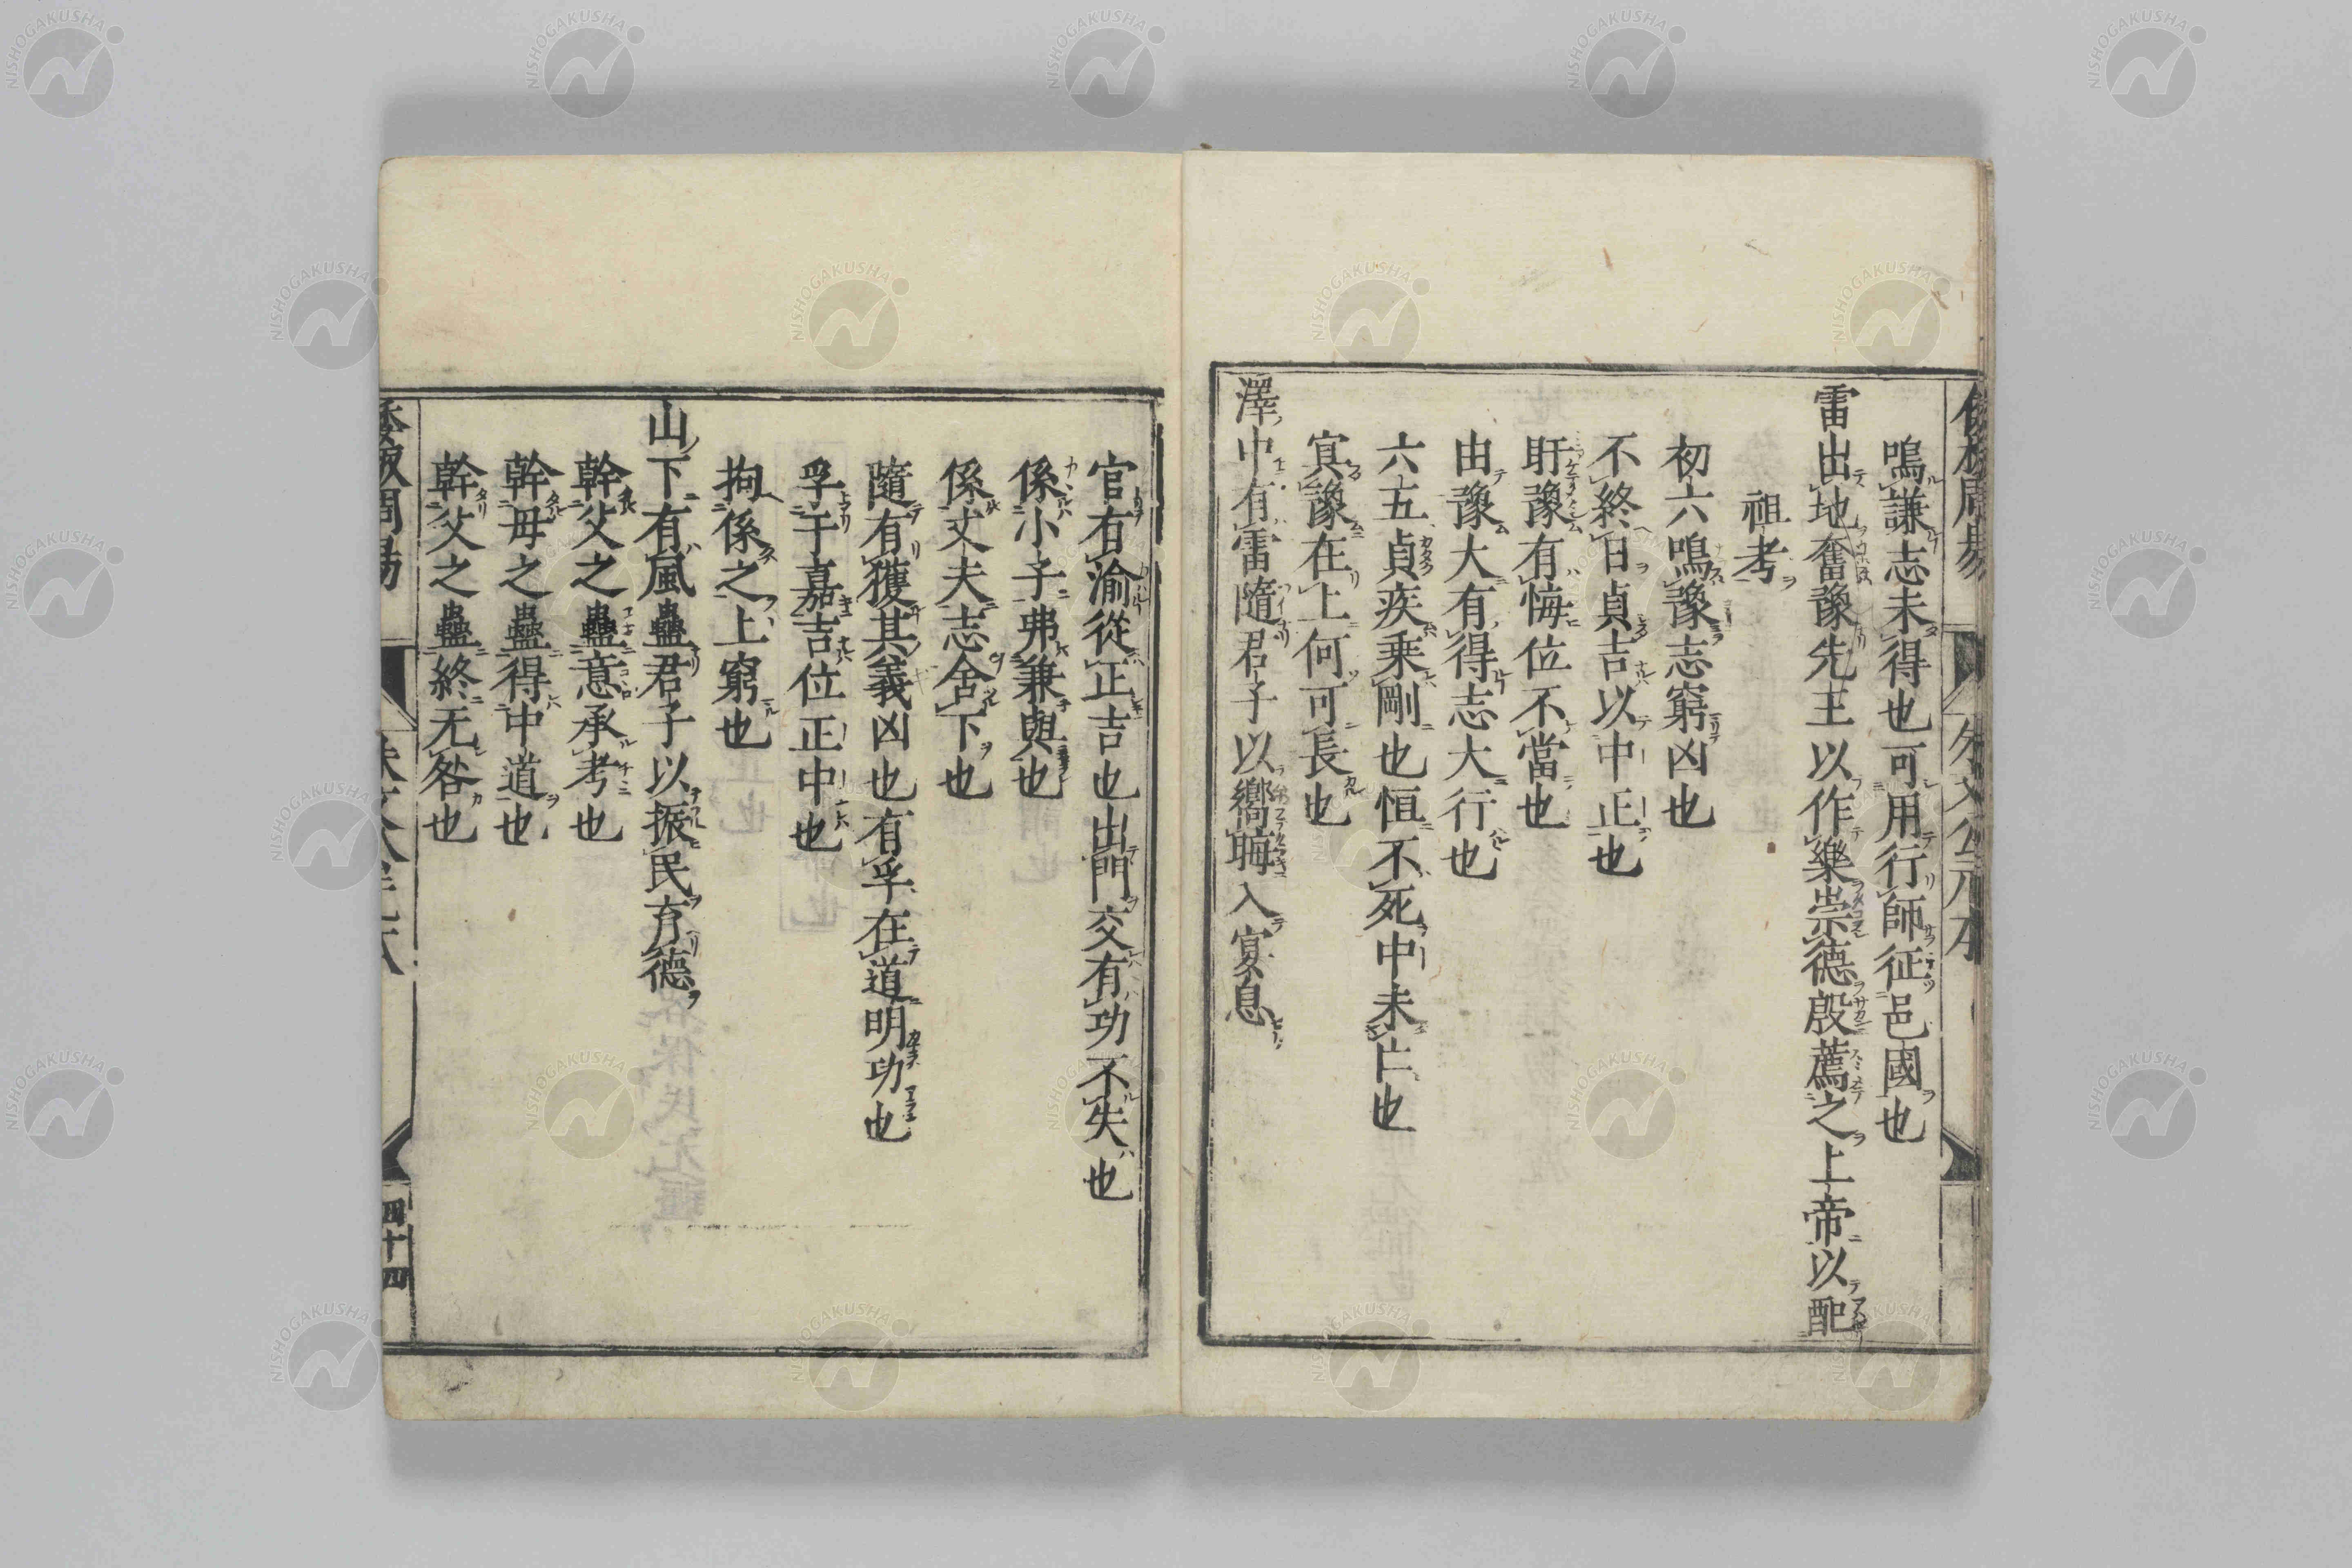 鳴謙志未得也可用行師征邑國也
雷出地奮豫先王以作樂崇德殷薦之上帝以配
祖考
初六鳴豫志窮凶也
不終日貞吉以中正也
盱豫有悔位不當也
由豫大有得志大行也
六五貞疾乘剛也恒不死中未亡也
冥豫在上何可長也
澤中有雷隨君子以嚮晦入宴息
官有渝從正吉也出門交有功不失也
係小子弗兼與也
係丈夫志舍下也
隨有獲其義凶也有孚在道明功也
孚于嘉吉位正中也
拘係之上窮也
山下有風蠱君子以振民育德
幹父之蠱意承考也
幹母之蠱得中道也
幹父之蠱終无咎也
四十四
NISHOGAKUSHA